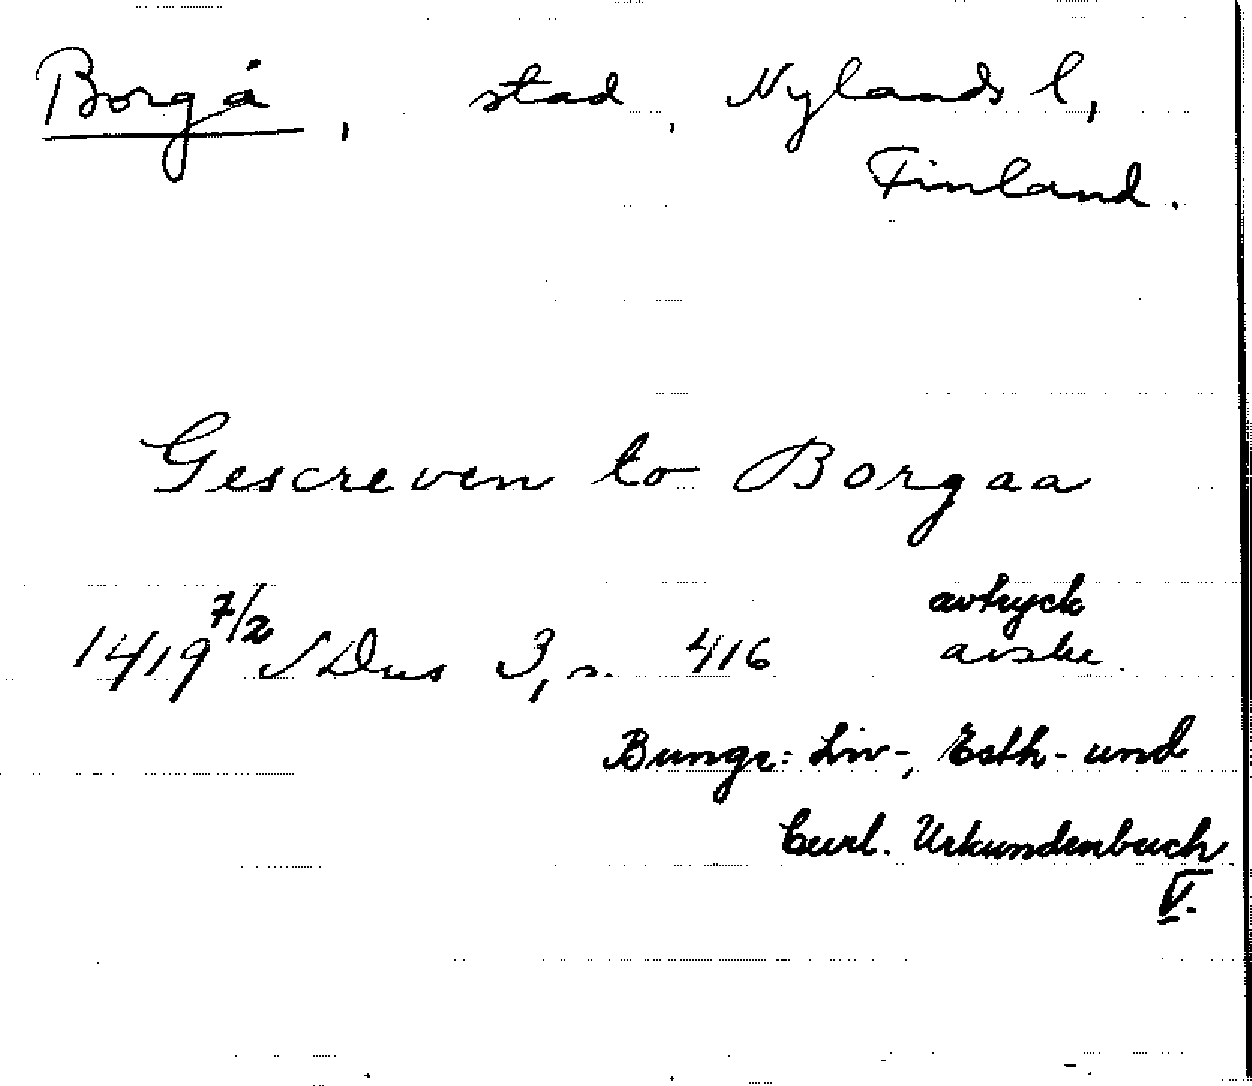 Borgå, stad, Nylands l,
Finland.
Gescreven to Borgaa
1419 7/2 SDns 3, s. 416 avtryck
avskr.
Bunge: Liv-, Esth- und
Curl. Urkundenbuch
V.